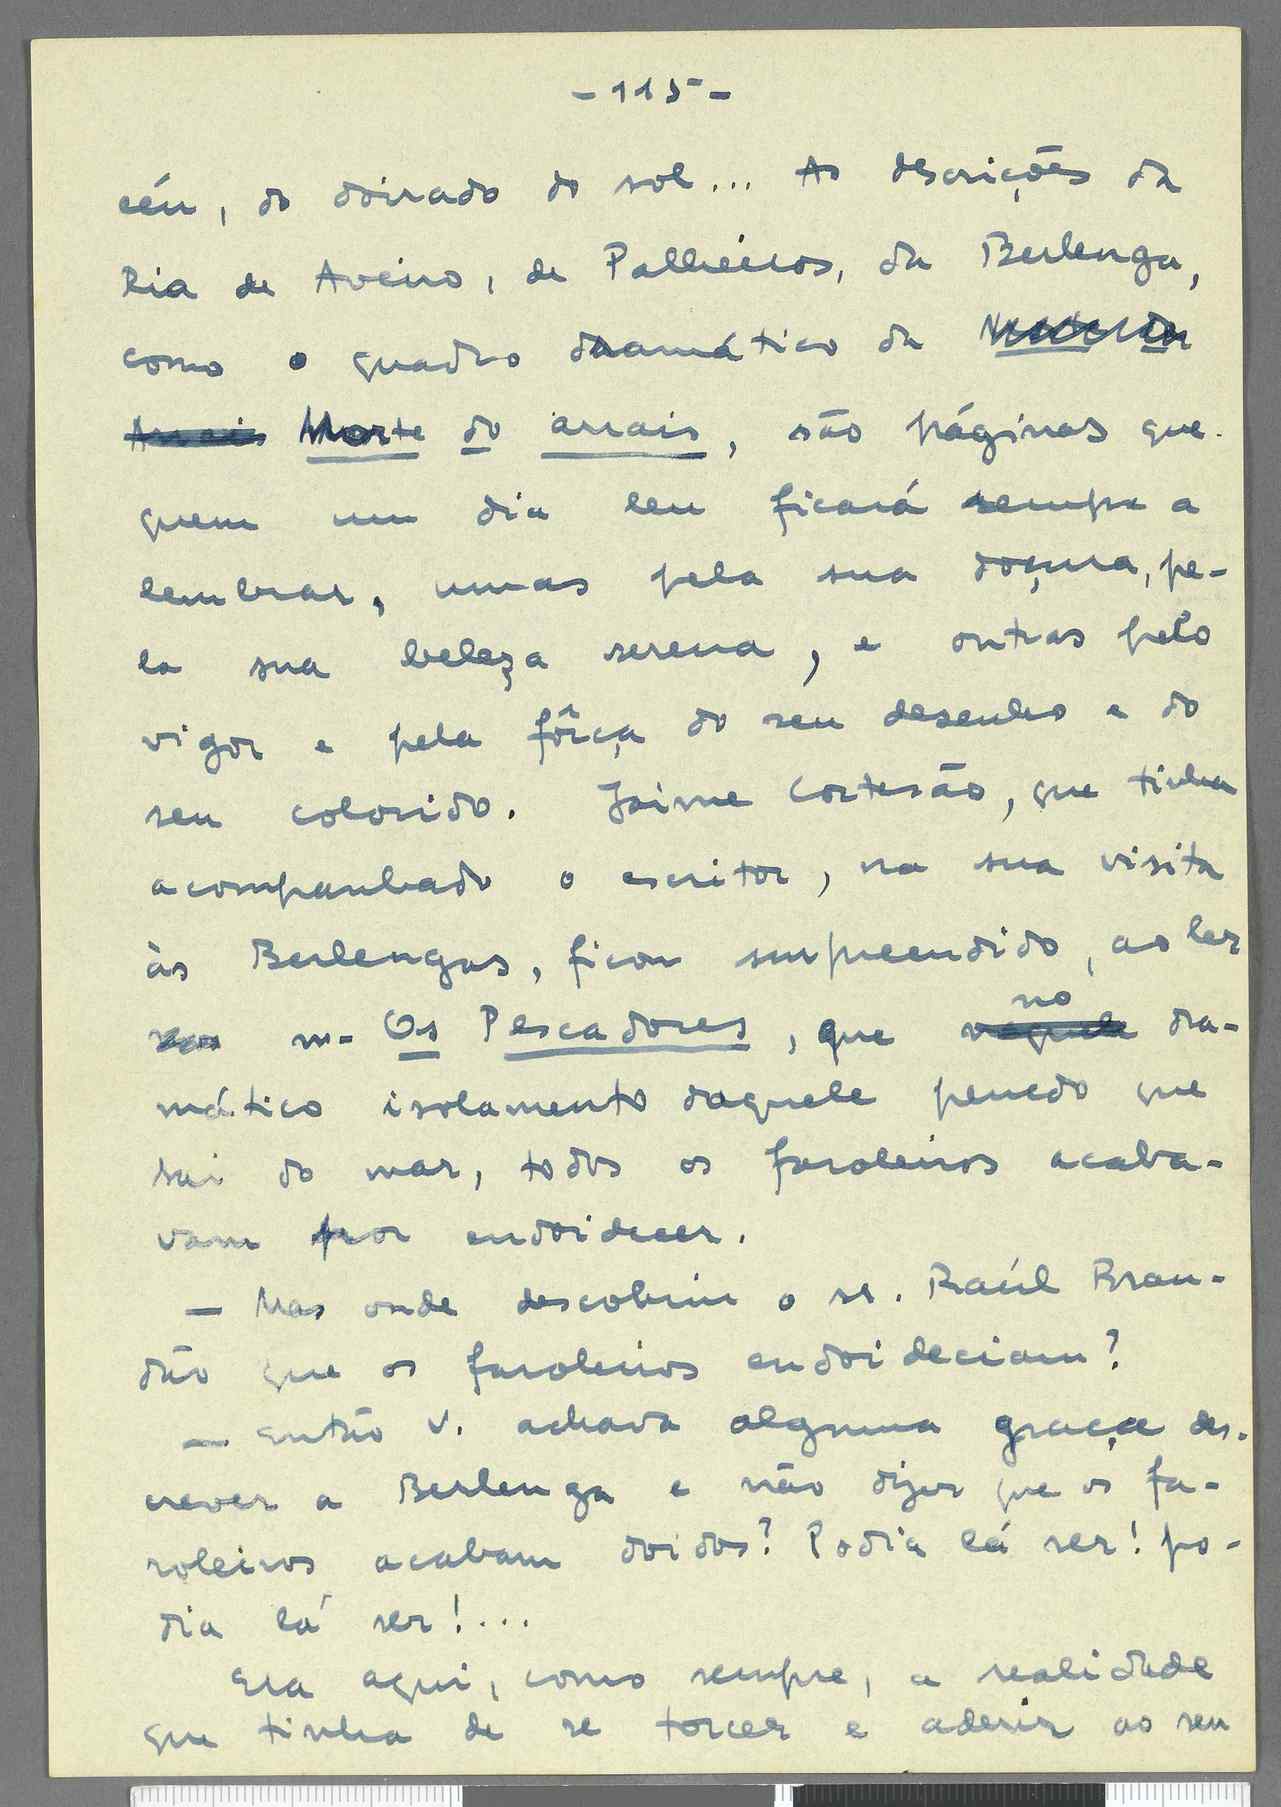 - 115 -
céu, do doirado do sol... As descrições da
Ria de Aveiro, de Palheiros, da Berlenga,
como o quadro dramático da
Arrais Morte do arrais, são páginas que
quem um dia leu ficará sempre a
lembrar, umas pela sua doçura, pe-
la sua beleza serena, e outras pelo
vigor e pela fôrça do seu desenho e do
seu colorido. Jaime Cortesão, que tinha
acompanhado o escritor, na sua visita
às Berlengas, ficou surpreendido, ao ler
n- Os Pescadores, que naquele no dra-
mático isolamento daquele penedo que
sai do mar, todos os faroleiros acaba-
vam por endoidecer.
— Mas onde descobriu o sr. Raúl Bran-
dão que os faroleiros endoideciam?
— Então V. achava alguma graça des-
crever a Berlenga e não dizer que os fa-
roleiros acabam doidos? Podia lá ser! po-
dia lá ser!...
Era aqui, como sempre, a realidade
que tinha de se torcer e aderir ao seu